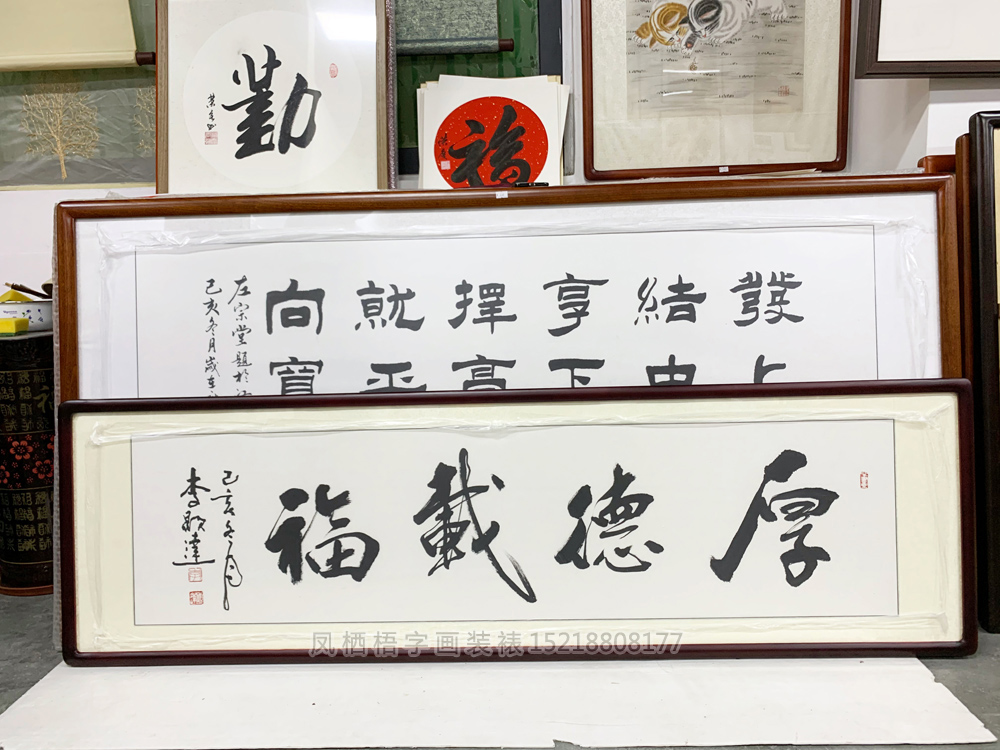 勤
福
發上
結中
享下
擇高
就平
向寬
左宗堂題於
己亥冬月歲在
厚德載福
己亥冬月
凤栖梧字画装裱15218808177